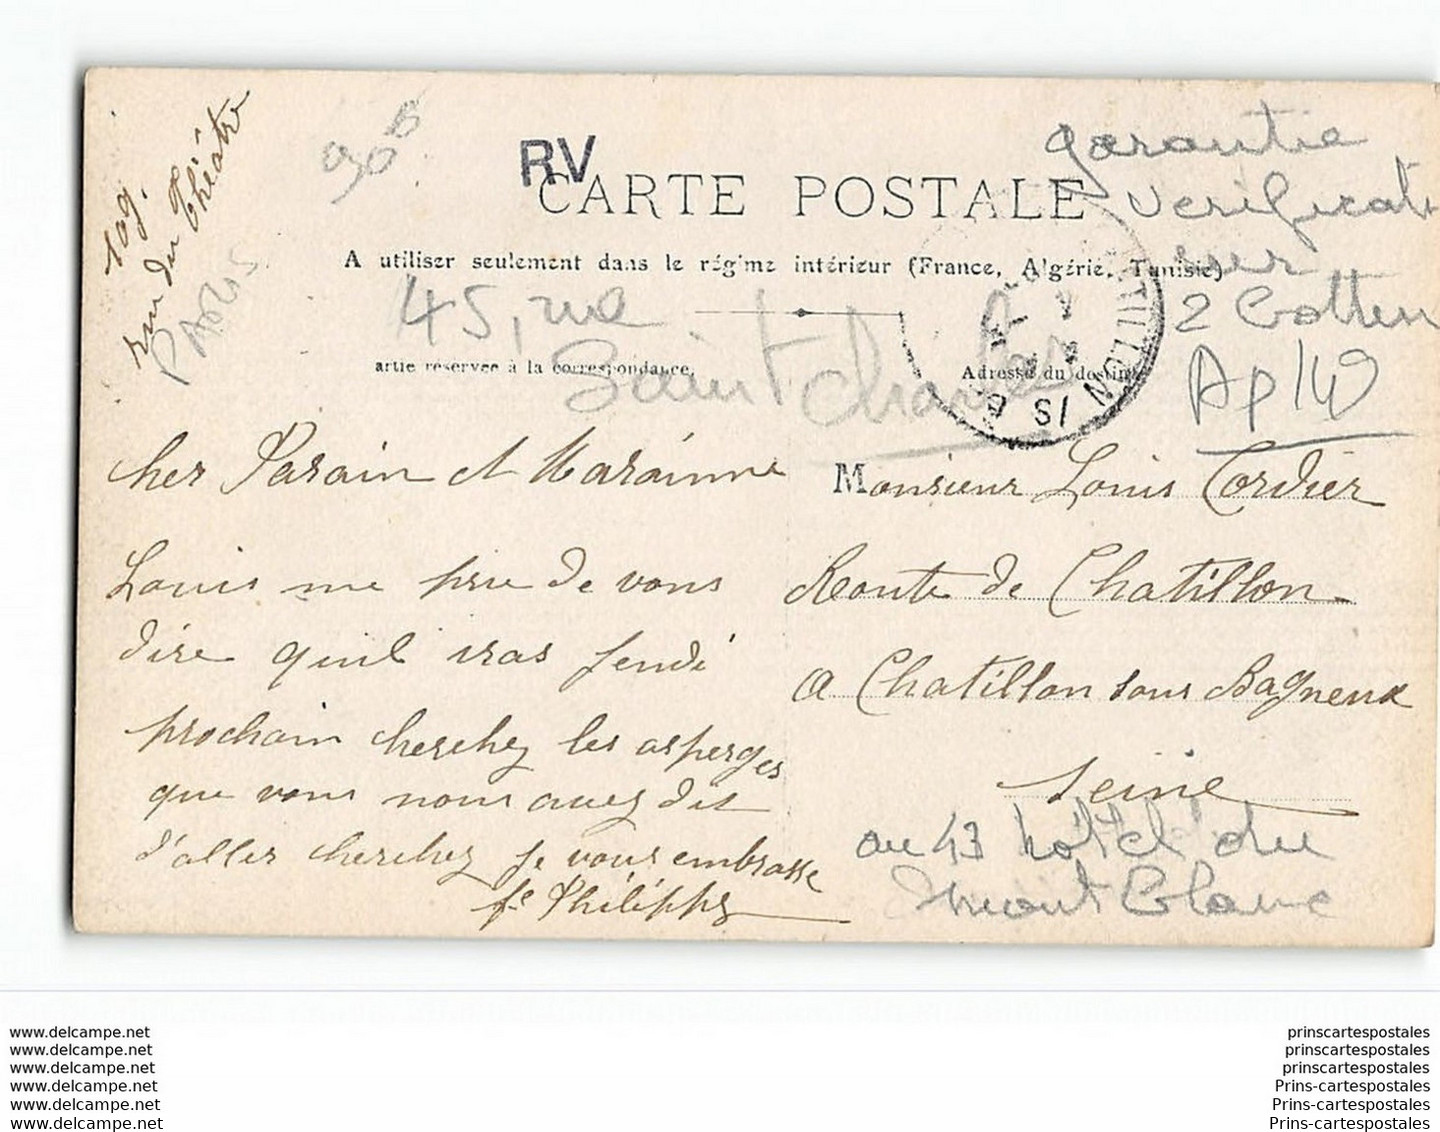 109.
rue du Théâtre
PARIS
90 B
RV
CARTE POSTALE
A utiliser seulement dans le régime intérieur (France, Algérie, Tunisie)
garantie
verificat
sur
2 Cotten
Ap 149
45, rue
Saint Charles
artie réservée à la correspondance.
Adresse du destin
CHATILLON
cher Parain et Marainne
Louis me prie de vous
dire quil iras jeudi
prochain cherchez les asperges
que vous nous avez dit
d'aller cherchez je vous embrasse
Philippe
Monsieur Louis Cordier
Route de Chatillon
a Chatillon sous Bagneux
Seine
au 43 hôtel du
mont blanc
www.delcampe.net
www.delcampe.net
www.delcampe.net
www.delcampe.net
www.delcampe.net
www.delcampe.net
prinscartespostales
prinscartespostales
prinscartespostales
Prins-cartespostales
Prins-cartespostales
Prins-cartespostales